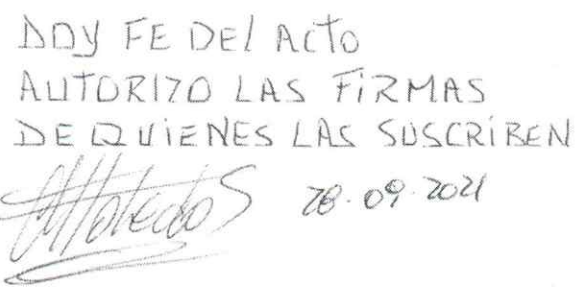 DOY FE DEl ACTO
AUTORIZO LAS FiRMAS
DE QUiENES LAS SUSCRiBEN
28.09.2021